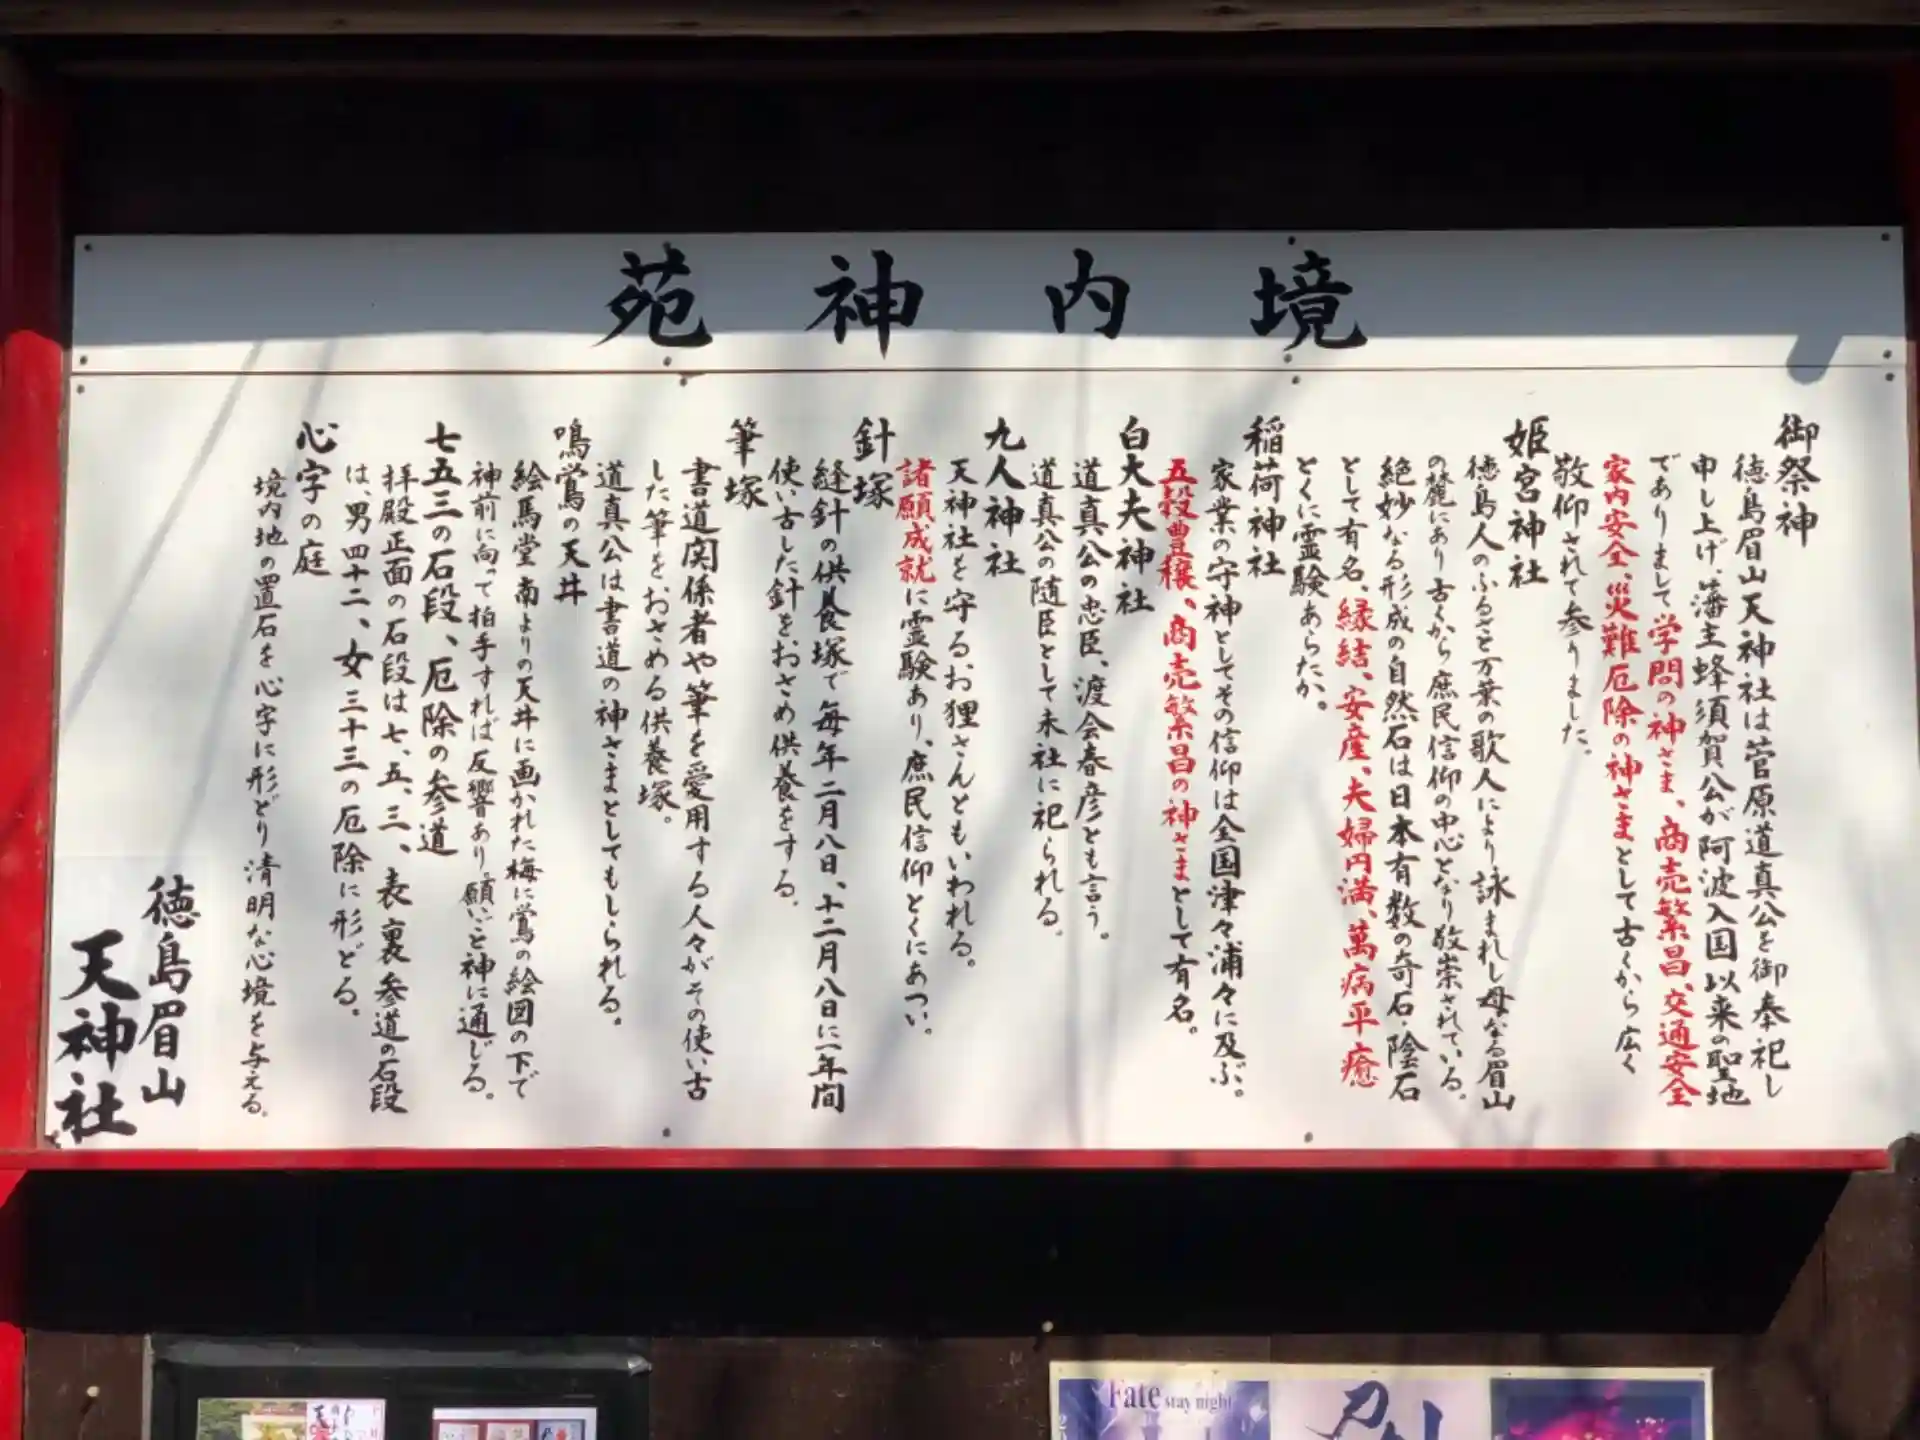 境内神苑
御祭神
徳島眉山天神社は菅原道真公を御奉祀し
申し上げ、藩主蜂須賀公が阿波入国以来の聖地
でありまして、学問の神さま、商売繁昌、交通安全
家内安全、災難厄除の神さまとして古くから広く
敬仰されて参りました。
姫宮神社
徳島人のふるさと万葉の歌人により詠まれし母なる眉山
の麓にあり古くから庶民信仰の中心となり敬崇されている。
絶妙なる形成の自然石は日本有数の奇石・陰石
として有名、縁結、安産、夫婦円満、萬病平癒
とくに霊験あらたか。
稲荷神社
家業の守神としてその信仰は全国津々浦々に及ぶ。
五穀豊穣、商売繁昌の神さまとして有名。
白大夫神社
道真公の忠臣、渡会春彦とも言う。
道真公の随臣として末社に祀られる。
九人神社
天神社を守るお狸さんともいわれる。
諸願成就に霊験あり、庶民信仰とくにあつい。
針塚
縫針の供養塚で毎年二月八日、十二月八日に一年間
使い古した針をおさめ供養をする。
筆塚
書道関係者や筆を愛用する人々がその使い古
した筆をおさめる供養塚。
道真公は書道の神さまとしてもしられる。
鳴鴬の天井
絵馬堂南よりの天井に画かれた梅に鴬の絵図の下で
神前に向って拍手すれば反響あり。願いごと神に通じる。
七五三の石段、厄除の参道
拝殿正面の石段は七、五、三、表裏参道の石段
は、男四十二、女三十三の厄除に形どる。
心字の庭
境内地の置石を心字に形どり清明な心境を与える。
徳島眉山
天神社
Fate stay night